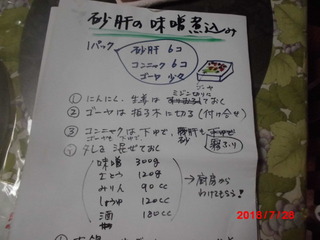 砂肝の味噌煮込み
1パック
砂肝 6コ
コンニャク 6コ
ゴーヤ 少々
ミジン切りに
① にんにく、生姜は ておく
② ゴーヤは拍子木に切る (付け合せ)
③ コンニャクは下ゆで、
ゴーヤも下ゆで 砂
霜ふり
タレを混ぜておく
味噌 300g
さとう 120g
みりん 90cc
しょうゆ 120cc
酒 180cc
→ 厨房から
わけてもらう!
2018/7/28